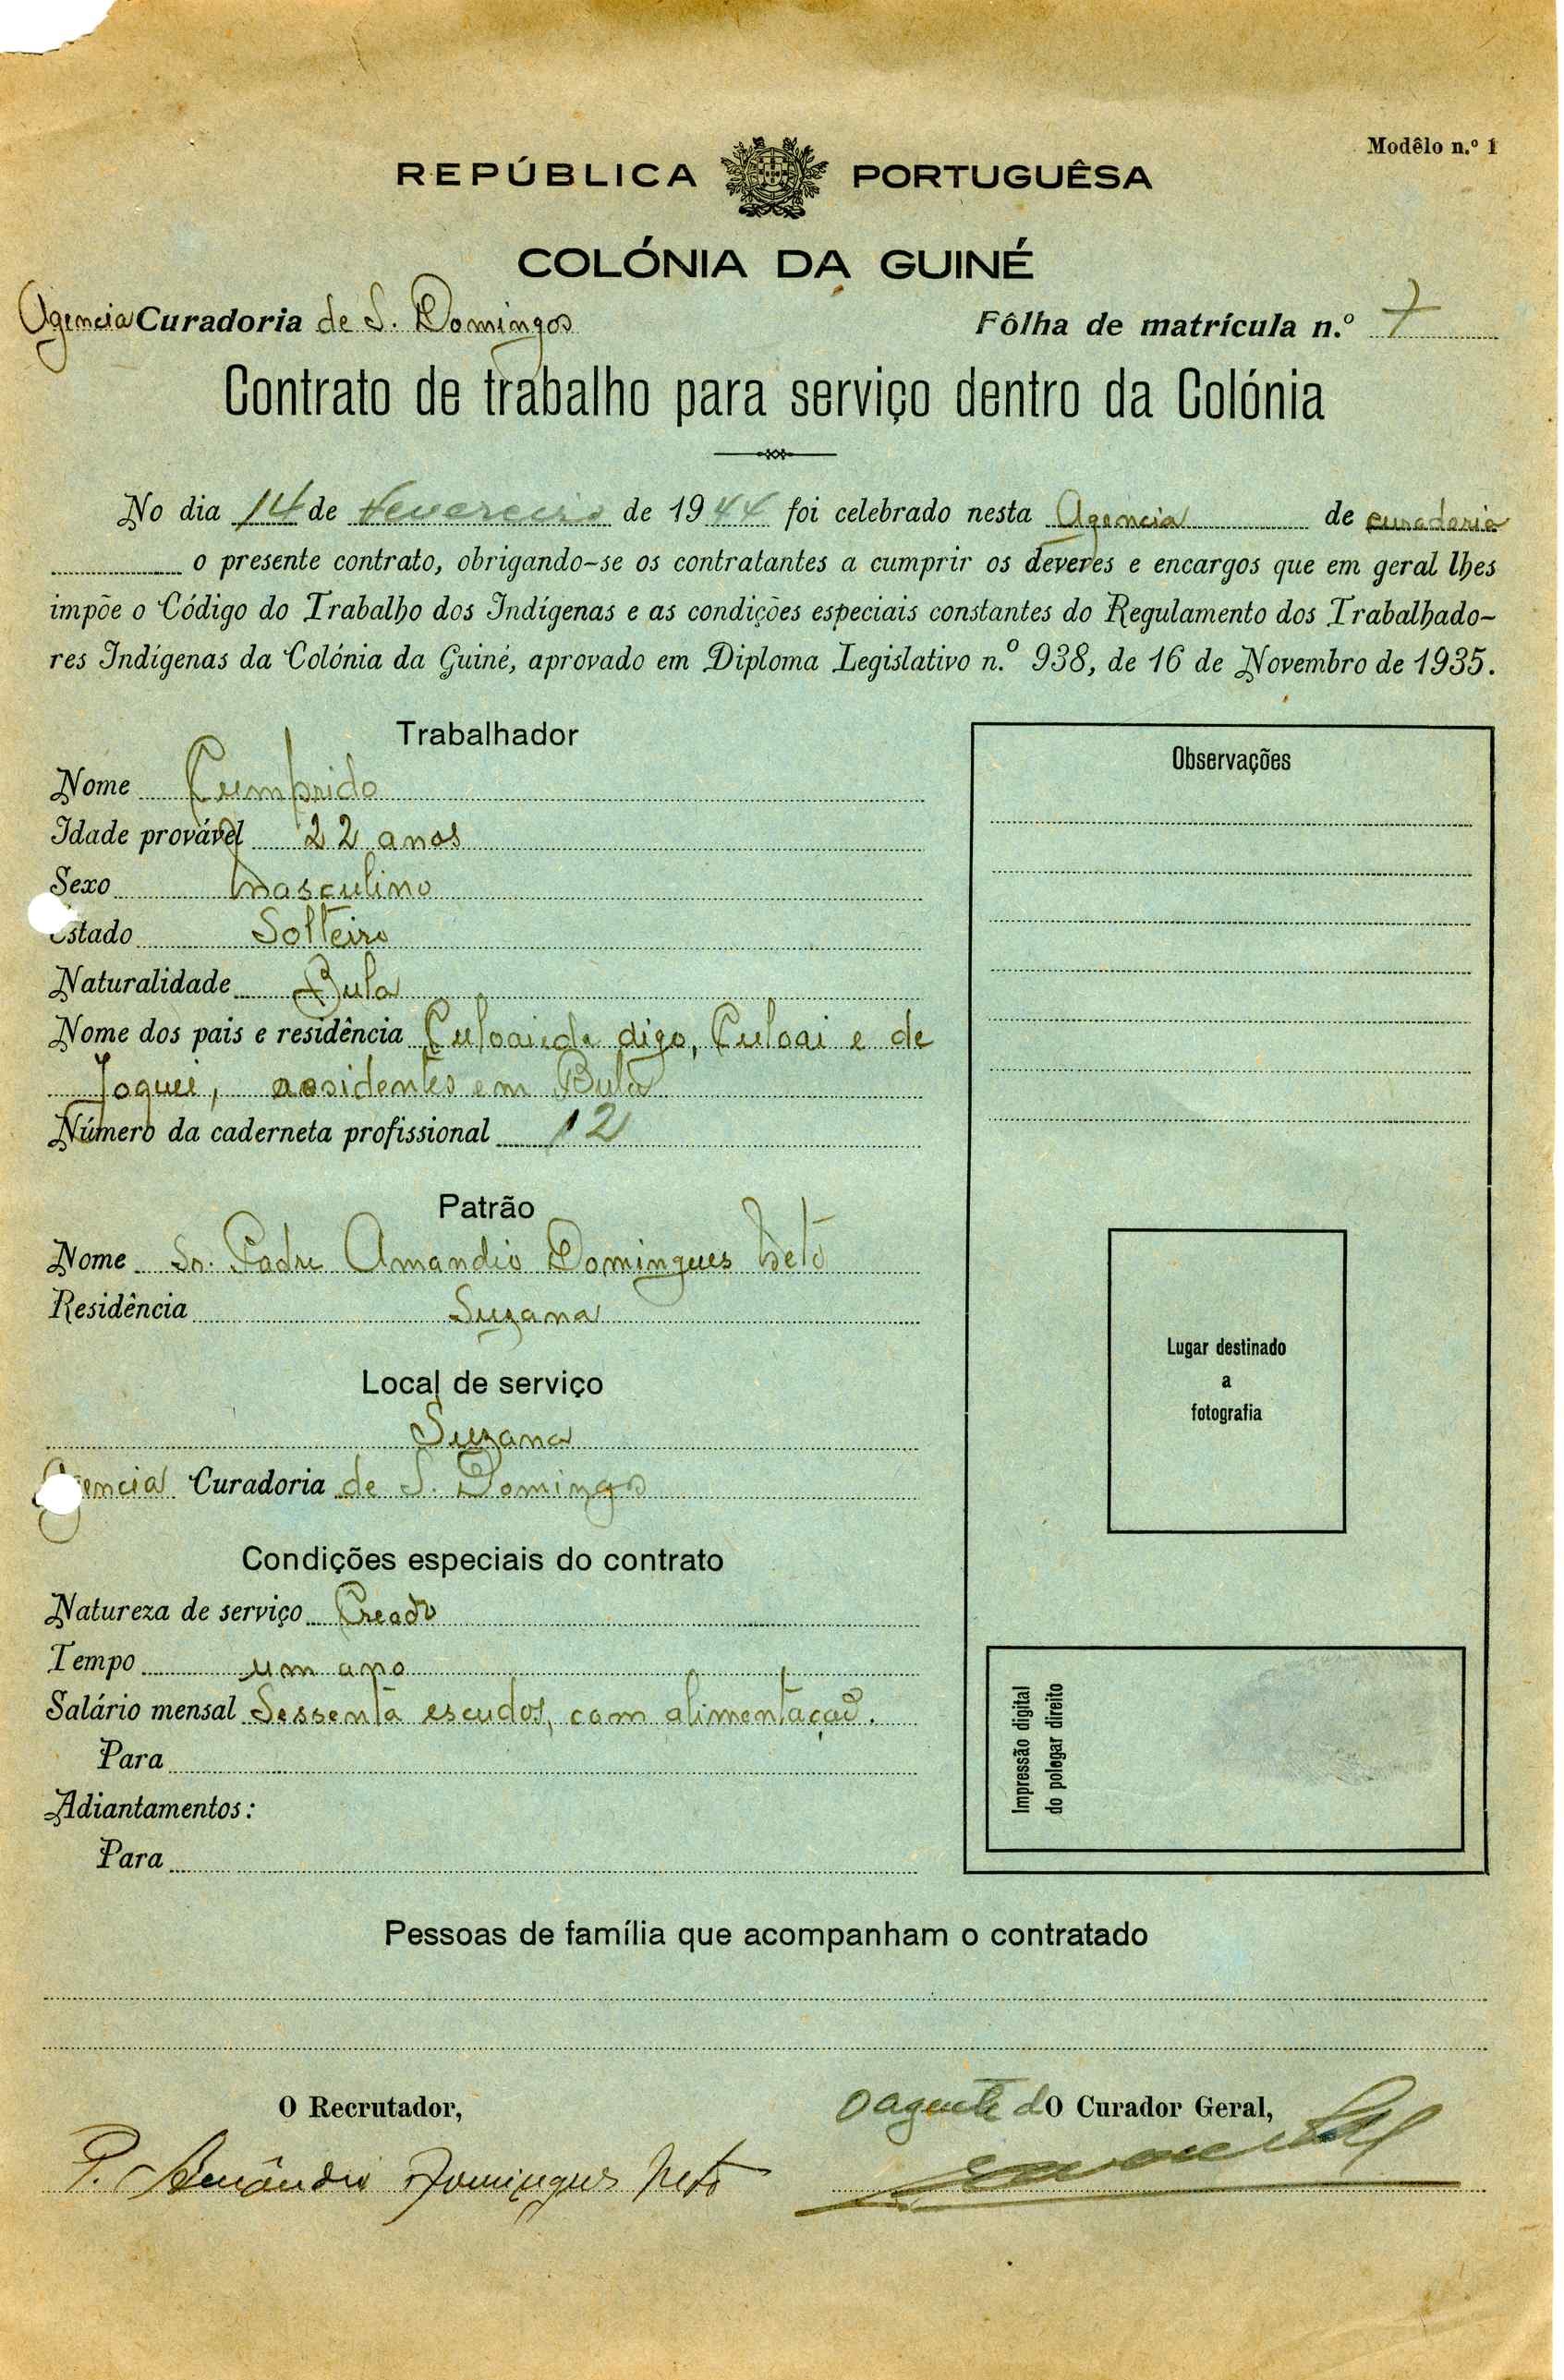 Modêlo n.º 1
REPÚBLICA PORTUGUÊSA
COLÓNIA DA GUINÉ
Agencia Curadoria de S. Domingos Fôlha de matrícula n.º 7
Contrato de trabalho para serviço dentro da Colónia
No dia 14 de Fevereiro de 1944 foi celebrado nesta Agencia de curadoria
o presente contrato, obrigando-se os contratantes a cumprir os deveres e encargos que em geral lhes
impõe o Código do Trabalho dos Indígenas e as condições especiais constantes do Regulamento dos Trabalhado-
res Indígenas da Colónia da Guiné, aprovado em Diploma Legislativo n.º 938, de 16 de Novembro de 1935.
Trabalhador
Nome Cumprido
Idade provável 22 anos
Sexo masculino
Estado Solteiro
Naturalidade Bula
Nome dos pais e residência digo, Culoai e de
Joquei, residentes em Bula
Número da caderneta profissional 12
Patrão
Nome Sr. Padre Amandio Domingues Neto
Residência Suzana
Local de serviço
Suzana
Agencia Curadoria de S. Domingos
Condições especiais do contrato
Natureza de serviço Creado
Tempo um ano
Salário mensal Sessenta escudos, com alimentação.
Para
Adiantamentos:
Para
Observações
Lugar destinado
a
fotografia
Impressão digital
do polegar direito
Pessoas de família que acompanham o contratado
O Recrutador,
P. Amândio Domingues Neto
O agente dO Curador Geral,